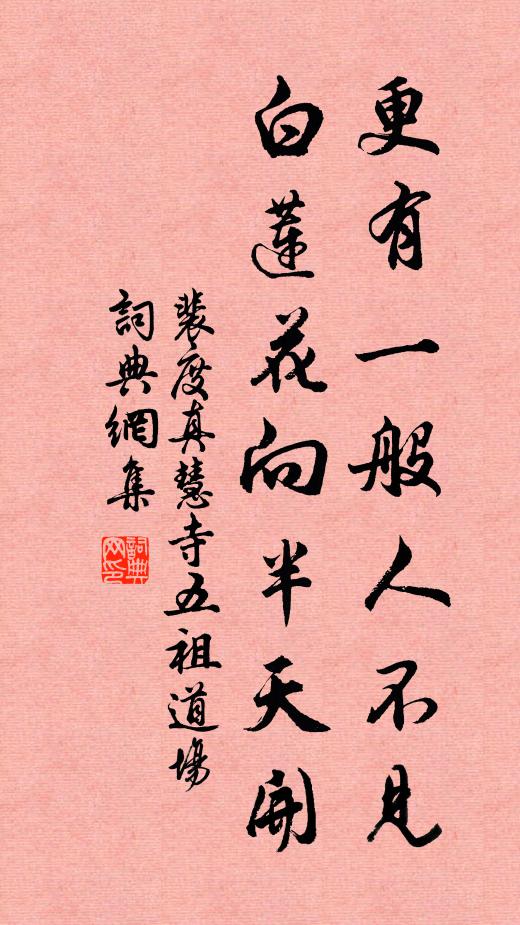 更有一般人不見
白蓮花向半天開
裴度真慧寺五祖道場
詞典網集
詞典网印